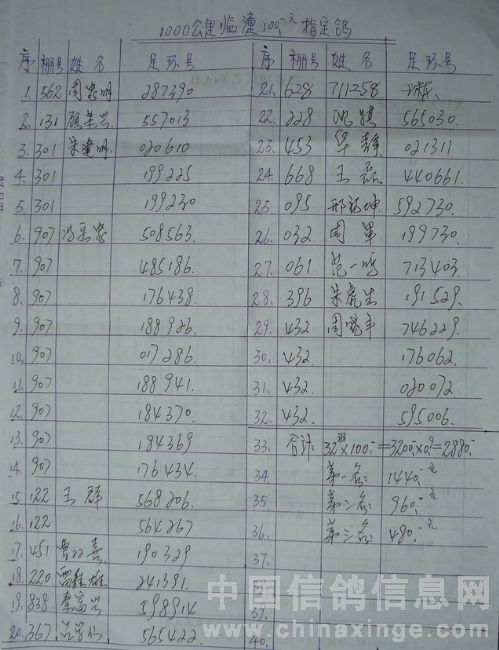 1000公里临潼100.-元指定鸽
序 棚号 姓名 足环号
1. 562 周忠明 287390
2. 131 顾荣兴 557013
3. 301 宋建明 020610
4. 301 199225
5. 301 199230
6. 907 508563.
7. 907 485186.
8. 907 176438.
9. 907 188926.
10. 907 017286.
11. 907 188941.
12. 907 184370.
13. 907 184369
14. 907 176434.
15. 122 王群 568206.
16. 122 564267
17. 451 190329
18. 220 241391.
19. 838 秦富兴 198914
20. 367 565422.
序 棚号 姓名 足环号
21. 628 711258
22. 228 565030.
23. 453 华静 021311
24. 668 王磊 440661.
25. 095 592730.
26. 032 周军 199730.
27. 061 范一鸣 713403.
28. 396 191529.
29. 432 周晓平 746229.
30. 432 176062.
31. 432. 020072
32. 432. 595006.
33. 合计 32羽×100.-=3200.-×0.9=2880.-
34. 第一名: 1440.-元
35. 第二名: 960.-元
36. 第三名: 480.-元
37.
40.
中国信鸽信息网
www.chinaxinge.com